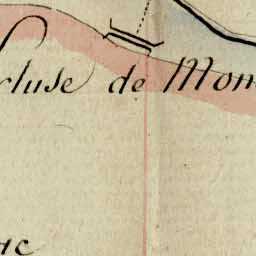 cluse de Mon
ac